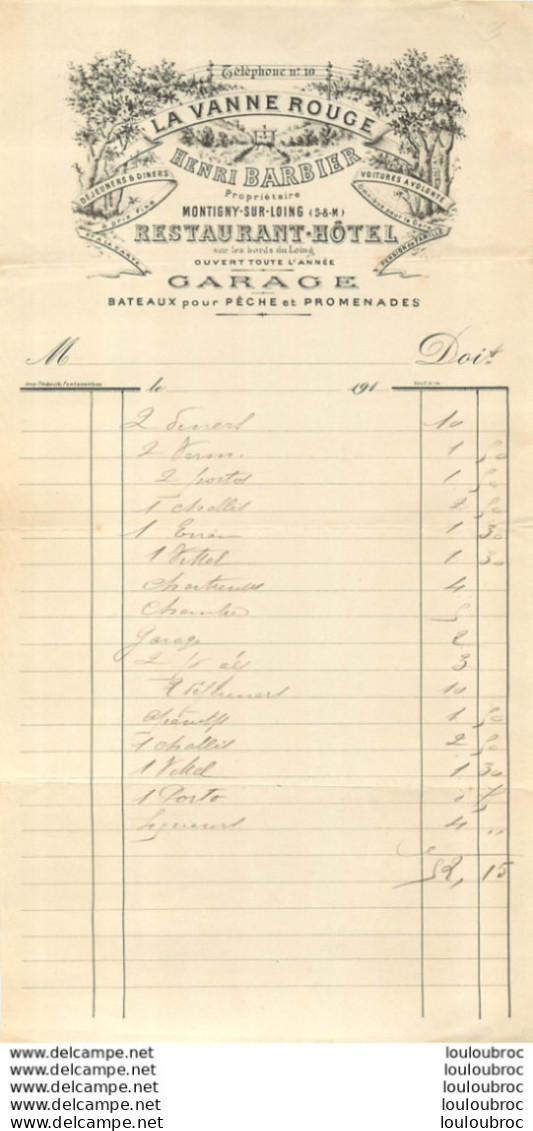 Téléphone nº 10
LA VANNE ROUGE
HENRI BARBIER
DÉJEUNERS & DINERS
à prix fixe
et à la carte
VOITURES A VOLONTÉ
PENSION DE FAMILLE
Propriétaire
MONTIGNY-SUR-LOING (S-&-M)
RESTAURANT-HÔTEL
sur les bords du Loing
OUVERT TOUTE L'ANNÉE
GARAGE
BATEAUX pour PÊCHE et PROMENADES
M Doit
le 191
2 diners 10
2 Verm. 1 50
2 portos 1 50
1 challis 2 50
1 1 30
1 Vittel 1 30
Chartreuses 4
Chambre 5
Garage 2
2 3
10
1 50
1 challis 2 50
1 Vittel 1 30
1 Porto
4 "
52, 15
www.delcampe.net louloubroc
www.delcampe.net louloubroc
www.delcampe.net louloubroc
www.delcampe.net louloubroc
www.delcampe.net louloubroc